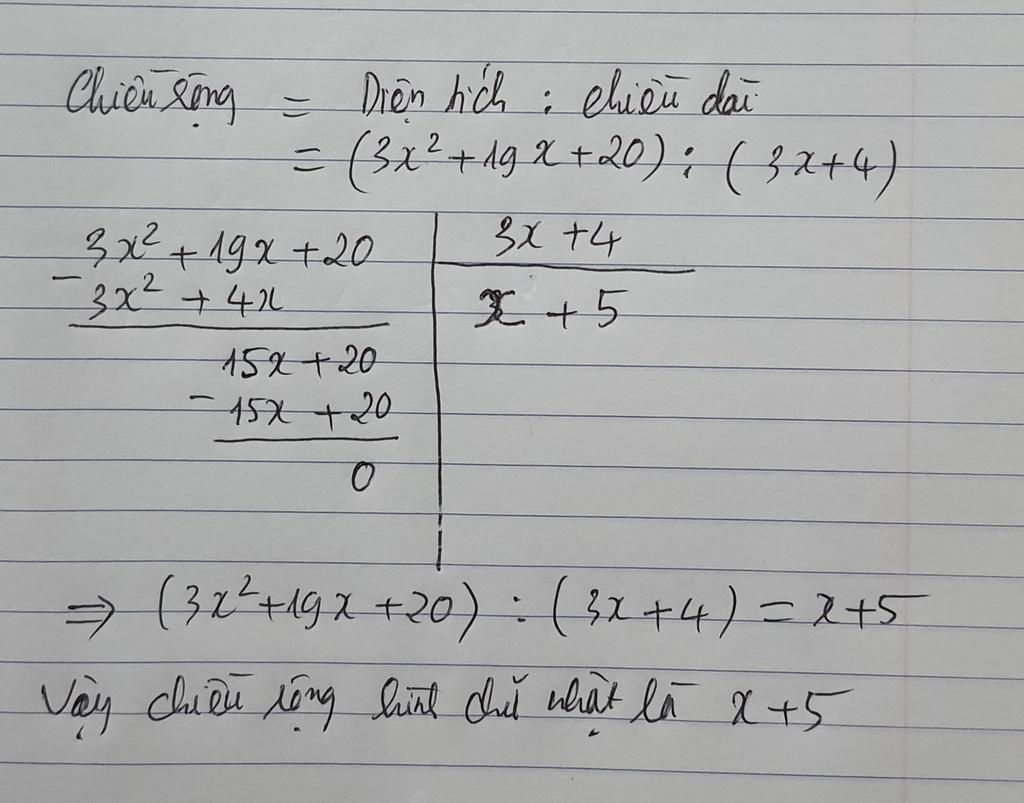 Chiều rộng = Diện tích : chiều dài
= (3x² + 19x + 20) : (3x + 4)
3x² + 19x + 20 | 3x + 4
- 3x² + 4x | x + 5
15x + 20
- 15x + 20
0
⇒ (3x² + 19x + 20) : (3x + 4) = x + 5
Vậy chiều rộng hình chữ nhật là x + 5